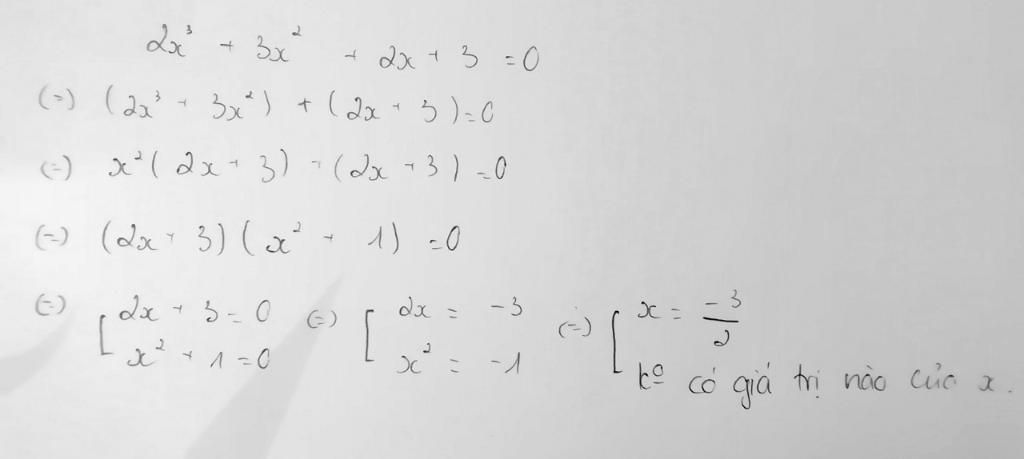 2x³ + 3x² + 2x + 3 = 0
(=) (2x³ + 3x²) + (2x + 3) = 0
(=) x²(2x + 3) + (2x + 3) = 0
(=) (2x + 3)(x² + 1) = 0
(=) [ 2x + 3 = 0 (=) [ 2x = -3 (=) [ x = -3/2
x² + 1 = 0 x² = -1 kº có giá trị nào của x.